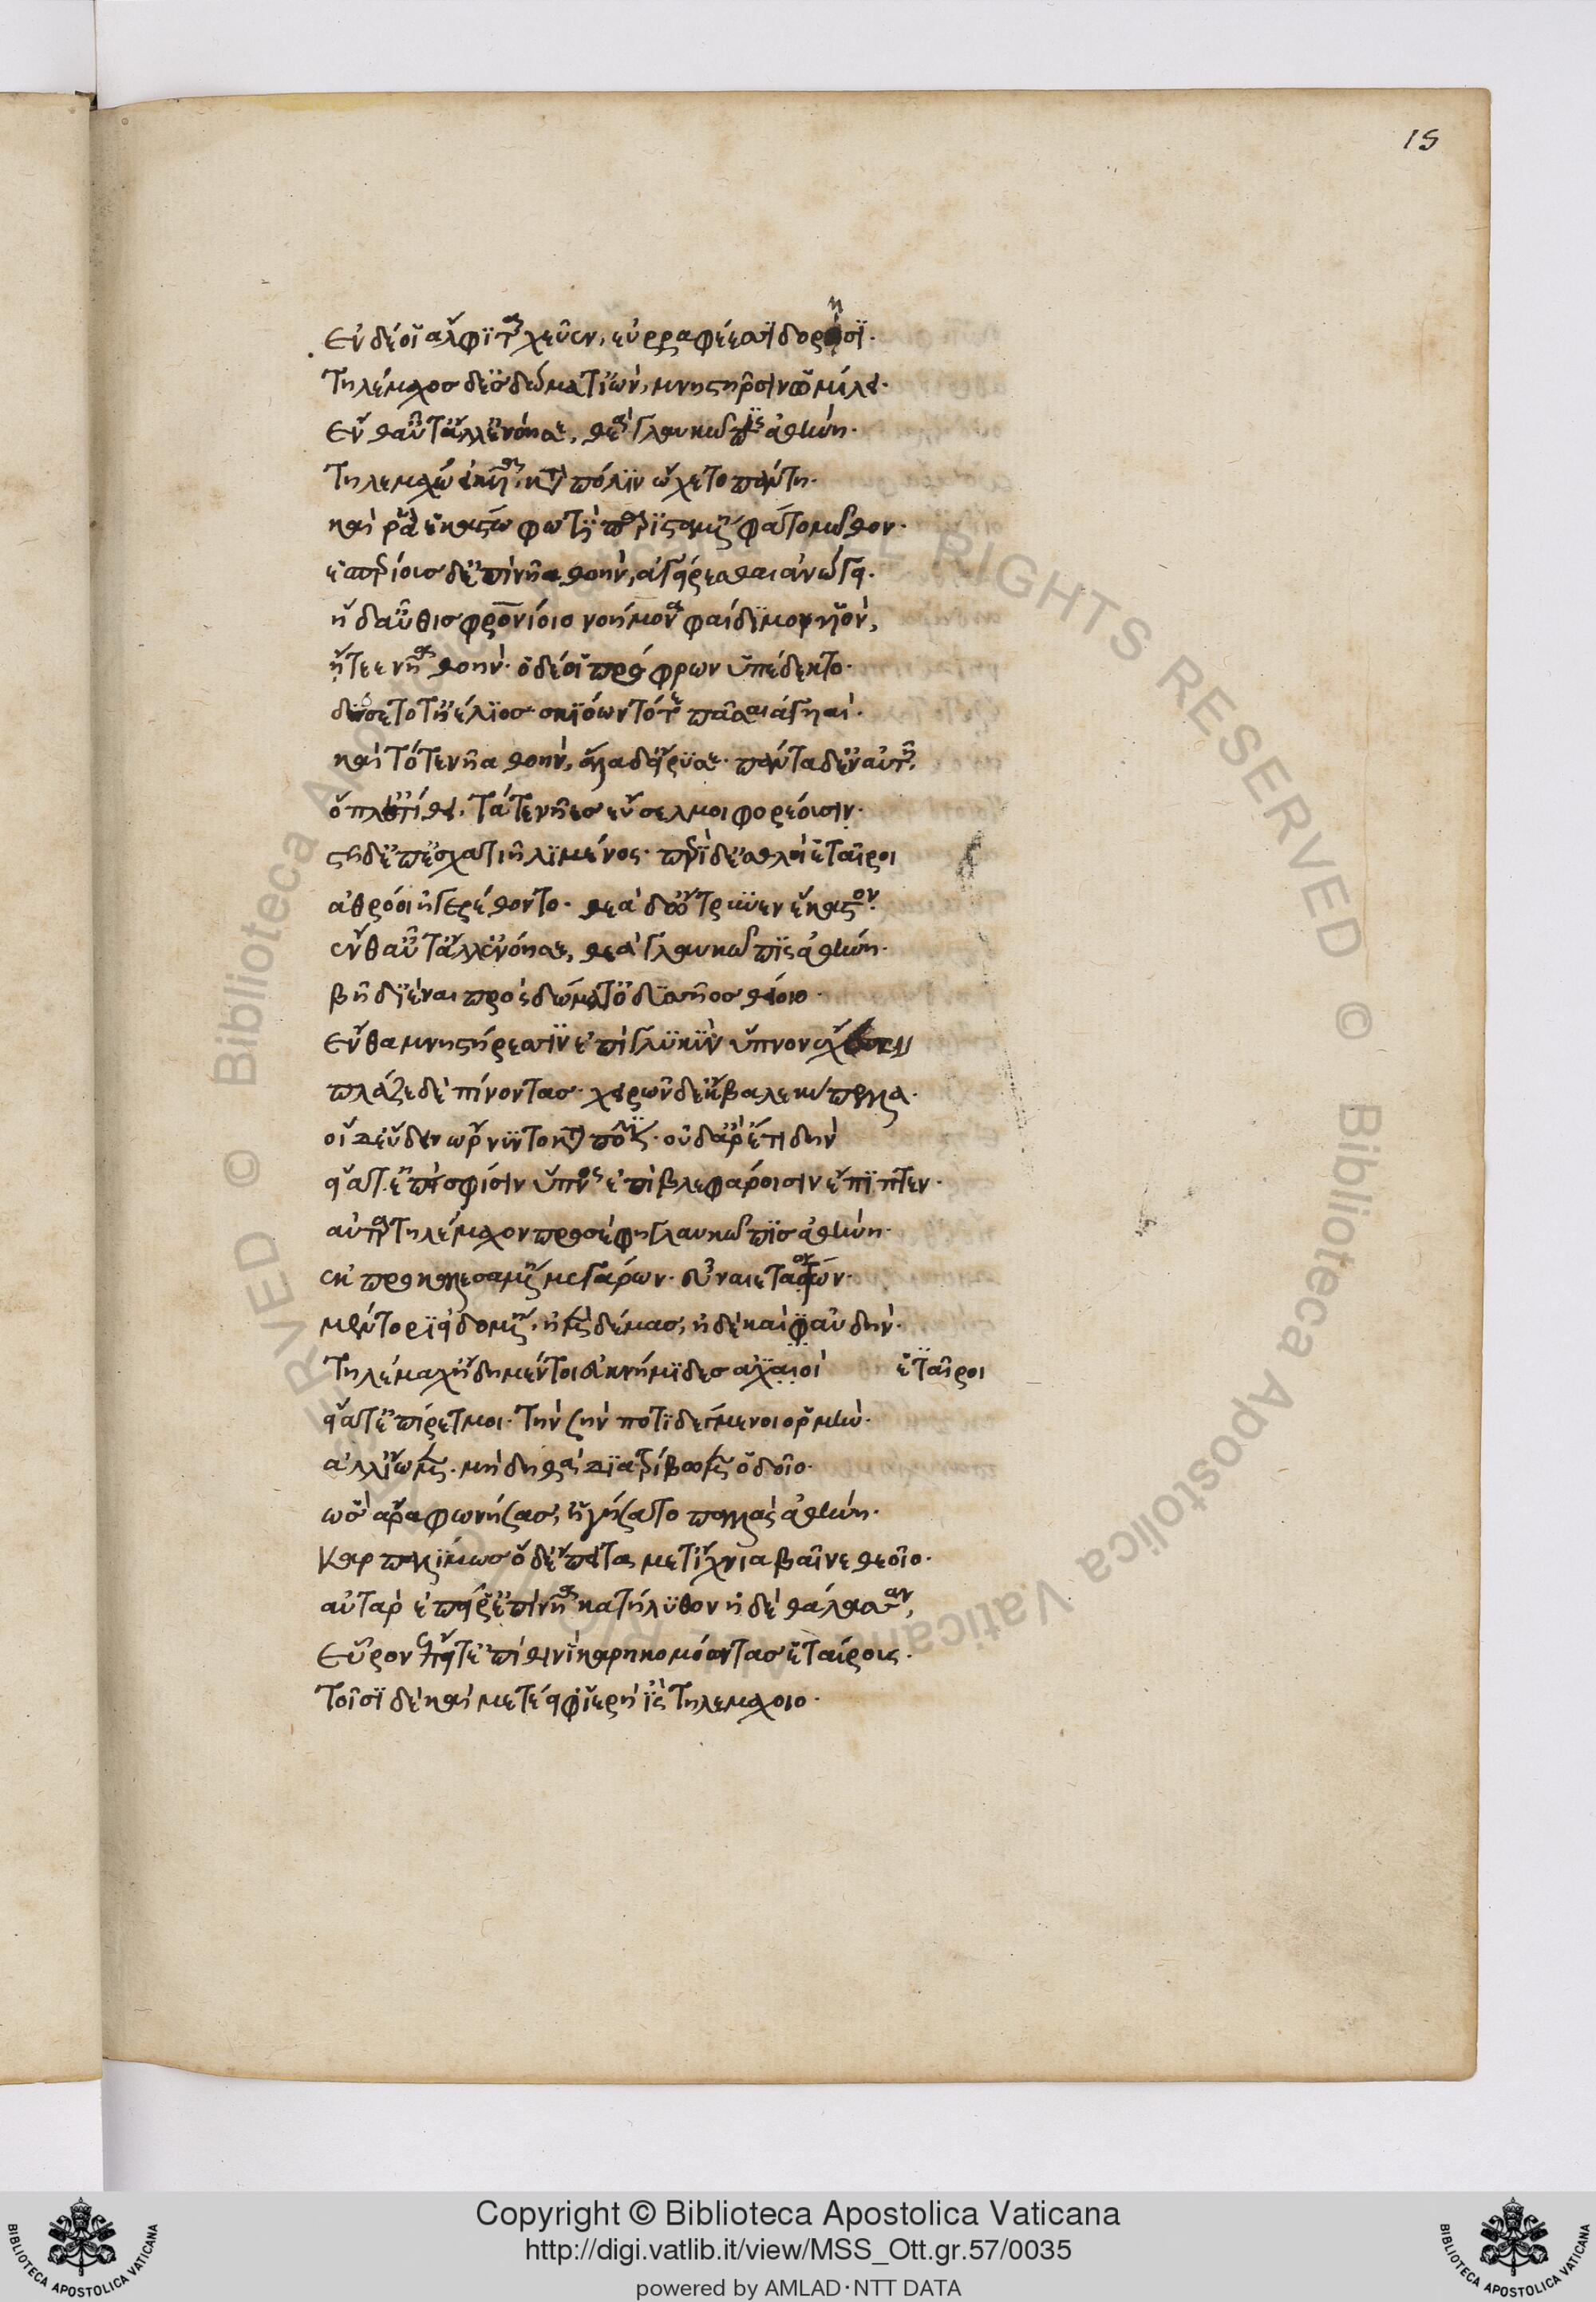 ἐν δέ οἱ ἄλφιτα χεῦεν, ἐϋρραφέεσσι δοροῖσι·
Τηλέμαχος δ' ἐς δώματ' ἰὼν, μνηστῆρσιν ὁμίλει·
ἔνθ' αὖτ' ἄλλ' ἐνόησε, θεὰ γλαυκῶπις ἀθήνη·
Τηλεμάχω εἰκυῖα, κατὰ πόλιν ὤχετο πάντη·
καί ῥα ἑκάστω φωτὶ παρισταμένη φάτο μῦθον·
ἑσπερίους δ' ἐπὶ νῆα θοὴν, ἀγείρεσθαι ἀνώγει·
ἡ δ' αὖθις φρονίοιο νοήμονα φαίδιμον υἱὸν,
ἤτεε νῆα θοήν· ὁ δέ οἱ πρόφρων ὑπέδεκτο·
δύσετό τ' ἠέλιος σκιόωντό τε πᾶσαι ἀγυιαί·
καὶ τότε νῆα θοὴν, ἅλαδ' εἴρυσε· πάντα δ' ἐν αὐτῆ,
ὅπλ' ἐτίθει, τά τε νῆες εὔσελμοι φορέουσιν·
στῆ δ' ἐπ' ἐσχατιῆ λιμένος· περὶ δ' ἐσθλοὶ ἑταῖροι
ἀθρόοι ἠγερέθοντο· θεὰ δ' ὤτρυνεν ἕκαστον·
ἔνθ' αὖτ' ἄλλ' ἐνόησε, θεὰ γλαυκῶπις ἀθήνη·
βῆ δ' ἰέναι πρὸς δώματ' ὀδυσσῆος θείοιο·
ἔνθα μνηστήρεσσιν ἐπὶ γλυκὺν ὕπνον ἔχευεν
πλάζε δὲ πίνοντας· χειρῶν δ' ἔκβαλε κύπελλα·
οἱ δ' εὕδειν ὤρνυντο κατὰ πόλιν· οὐδ' ἄρ' ἔτι δὴν
εἵατ' ἐπεί σφισιν ὕπνος ἐπὶ βλεφάροισιν ἔπιπτεν·
αὐτὰρ Τηλέμαχον προσέφη γλαυκῶπις ἀθήνη·
ἐκ προκαλεσαμένη μεγάρων· εὐναιεταόντων·
μέντορι εἰδομένη, ἠμὲν δέμας, ἠδὲ καὶ αὐδήν·
Τηλέμαχ' ἤδη μέν τοι ἐϋκνήμιδες ἀχαιοὶ ἑταῖροι
εἵατ' ἐπήρετμοι· τὴν σὴν ποτιδέγμενοι ὁρμήν·
ἀλλ' ἴωμεν· μὴ δηθὰ διατρίβωμεν ὁδοῖο·
ὣς ἄρα φωνήσασ', ἡγήσατο παλλὰς ἀθήνη·
καρπαλίμως ὁ δ' ἔπειτα μετ' ἴχνια βαῖνε θεοῖο·
αὐτὰρ ἐπεί ῥ' ἐπὶ νῆα κατήλυθον ἠδὲ θάλασσαν,
εὗρον ἔπειτ' ἐπὶ θινὶ καρηκομόωντας ἑταίρους·
Τοῖσι δὲ καὶ μετέειφ' ἱερὴ ἲς Τηλεμάχοιο·
15